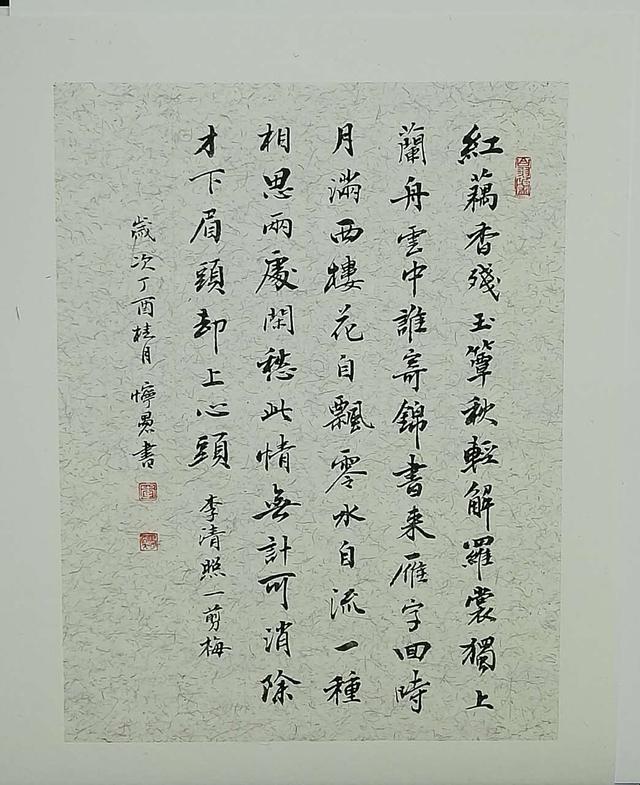 紅藕香殘玉簟秋輕解羅裳獨上
蘭舟雲中誰寄錦書来雁字回時
月滿西樓花自飄零水自流一種
相思兩處閑愁此情無計可消除
才下眉頭却上心頭
李清照一剪梅
歲次丁酉桂月
書